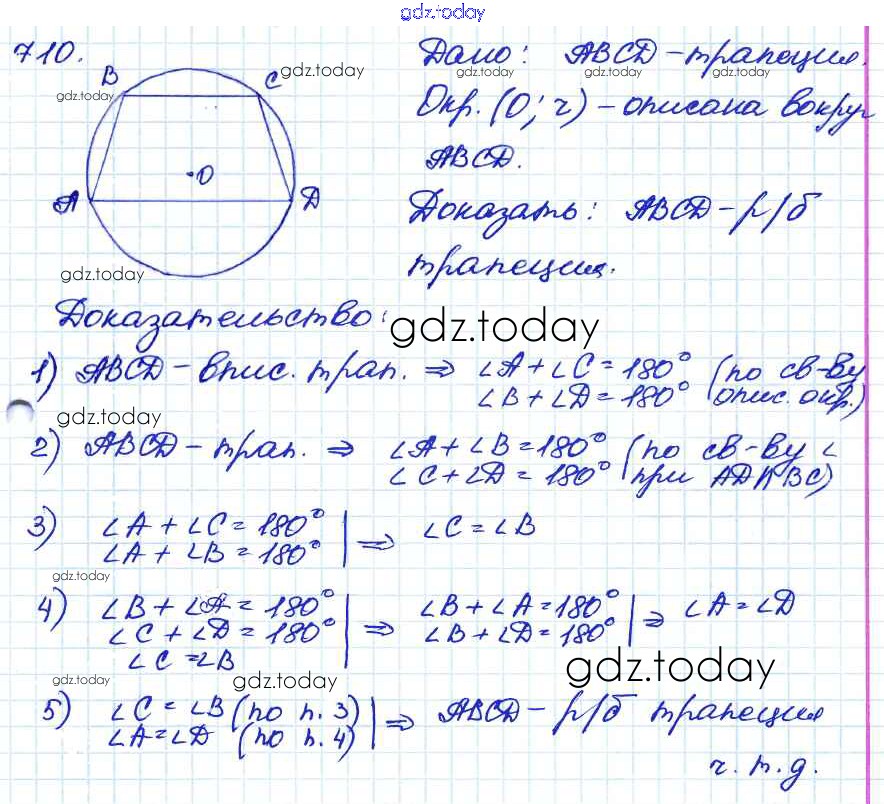 gdz.today
710.
B C gdz.today
gdz.today
O
A D
gdz.today
Дано: ABCD - трапеция.
gdz.today gdz.today gdz.today
Окр. (O; r) - описана вокруг
ABCD.
Доказать: ABCD - р/б
трапеция.
Доказательство:
gdz.today
1) ABCD - впис. трап. ⇒ ∠A + ∠C = 180° (по св-ву
∠B + ∠D = 180° опис. окр.)
gdz.today
2) ABCD - трап. ⇒ ∠A + ∠B = 180° (по св-ву ∠
∠C + ∠D = 180° при AD || BC)
3) ∠A + ∠C = 180° | ⇒ ∠C = ∠B
∠A + ∠B = 180°
gdz.today
4) ∠B + ∠A = 180° | ⇒ ∠B + ∠A = 180° | ⇒ ∠A = ∠D
∠C + ∠D = 180° ∠B + ∠D = 180°
∠C = ∠B
gdz.today gdz.today gdz.today
5) ∠C = ∠B (по п. 3) | ⇒ ABCD - р/б трапеция
∠A = ∠D (по п. 4)
ч. т. д.